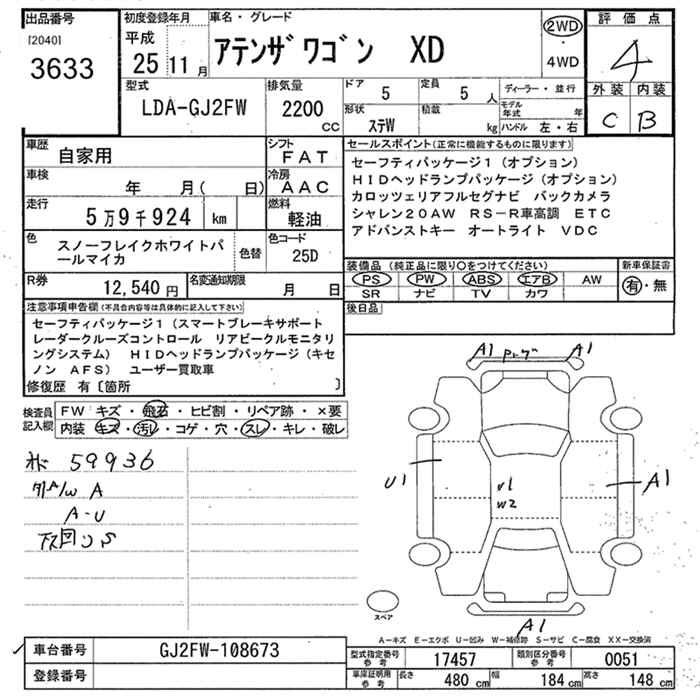 出品番号
[2040]
3633
初度登録年月
平成
25 11 月
車名・グレード
アテンザワゴン XD
2WD
・
4WD
評価点
4
外装 内装
C B
型式
LDA-GJ2FW
排気量
2200
CC
ドア
5
定員
5 人
形状
ステW
積載
kg
ディーラー・並行
モデル年式 年
ハンドル 左・右
車歴
自家用
シフト
FAT
車検
年 月( 日)
冷房
AAC
走行
5万9千924 km
燃料
軽油
色
スノーフレイクホワイトパ
ールマイカ
色替
色コード
25D
R券
12,540 円
名変通知期限
月 日
セールスポイント(正常に機能するものに限ります)
セーフティパッケージ1(オプション)
HIDヘッドランプパッケージ(オプション)
カロッツェリアフルセグナビ バックカメラ
シャレン20AW RS-R車高調 ETC
アドバンストキー オートライト VDC
装備品(純正品に限り○をつけてください)
PS PW ABS エアB AW
SR ナビ TV カワ
新車保証書
有・無
後日品
注意事項申告欄(不具合内容等は具体的に記入して下さい)
セーフティパッケージ1(スマートブレーキサポート
レーダークルーズコントロール リアビークルモニタリ
ングシステム) HIDヘッドランプパッケージ(キセ
ノン AFS) ユーザー買取車
修復歴 有〔箇所 〕
検査員
記入欄
FW キズ・飛石・ヒビ割・リペア跡・×要
内装 キズ・汚レ・コゲ・穴・スレ・キレ・破レ
59936
A
A-U
A1
A1
U1
U1
W2
A1
スペア
A1
A-キズ E-エクボ U-凹み W-補修跡 S-サビ C-腐食 XX-交換済
車台番号
GJ2FW-108673
登録番号
型式指定番号
参考
17457
類別区分番号
参考
0051
車庫証明用
参考
長さ
480 cm
幅
184 cm
高さ
148 cm